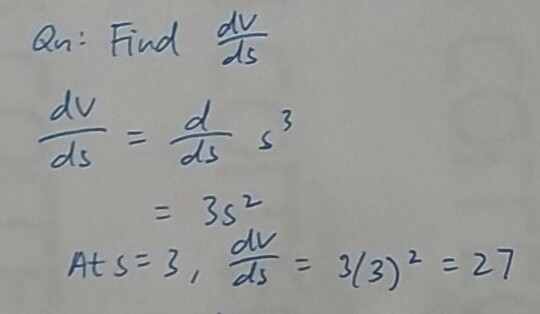 Qn: Find dv/ds
dv/ds = d/ds s³
= 3s²
At s=3, dv/ds = 3(3)² = 27